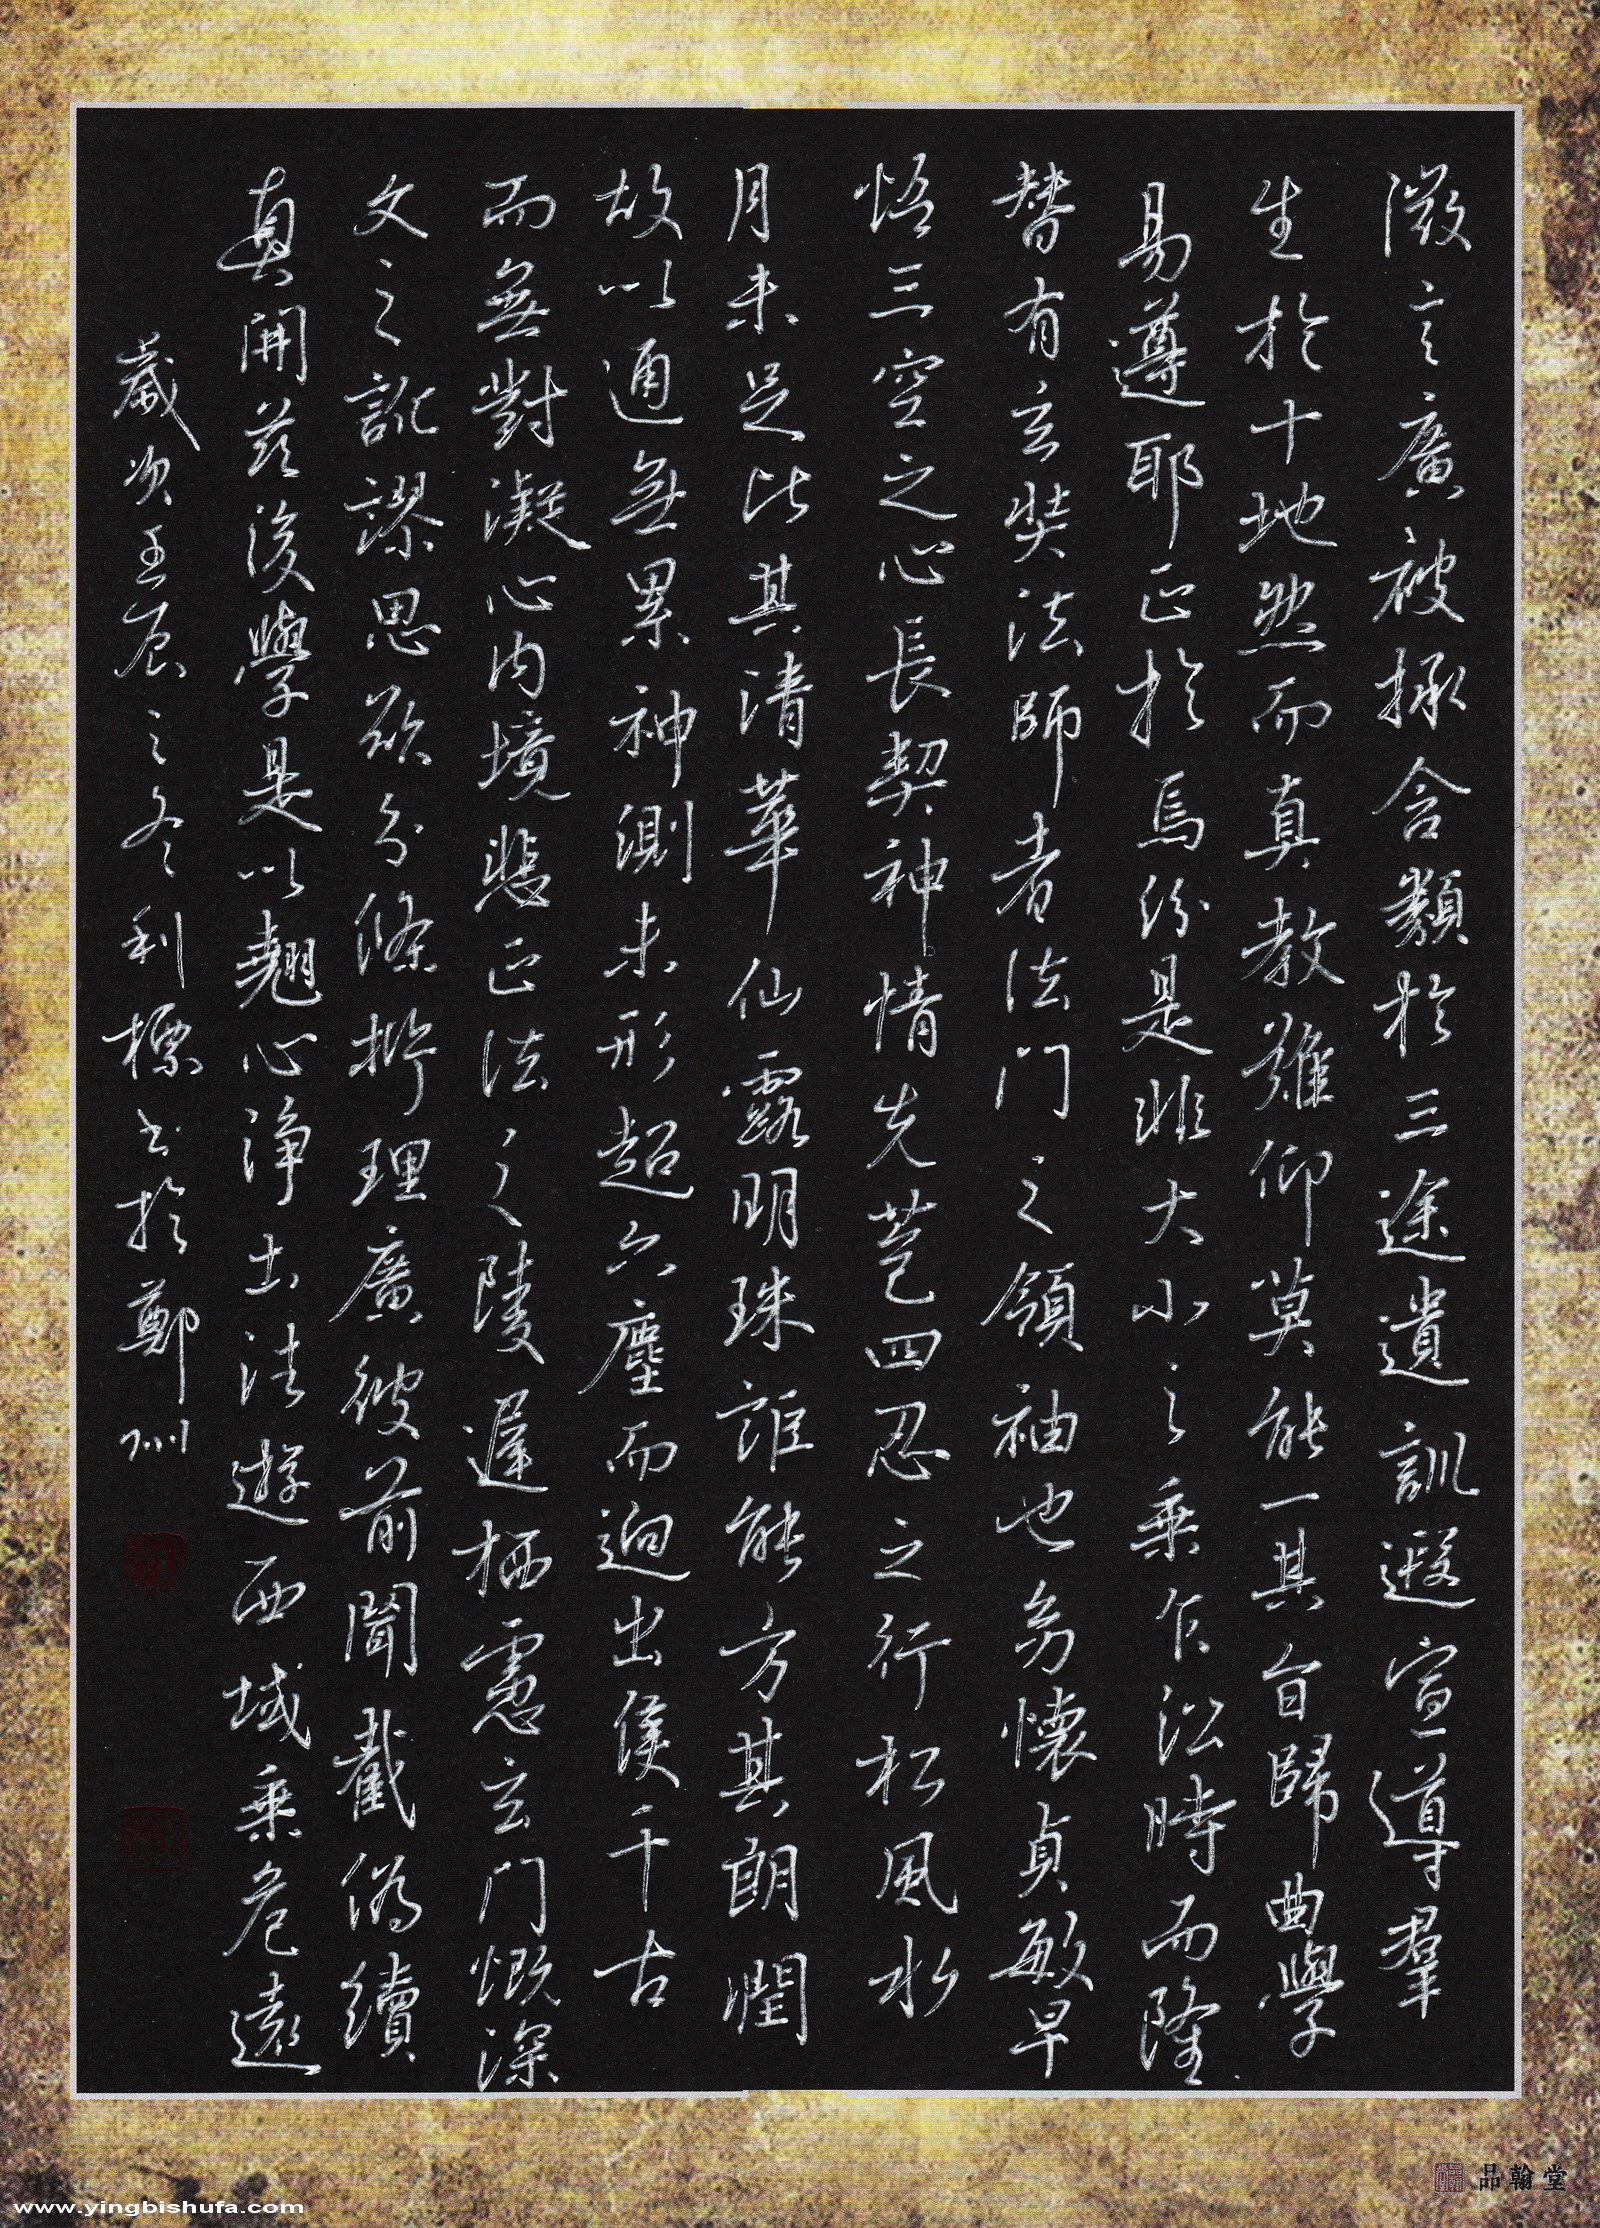 微言廣被拯含類於三途遺訓遐宣導羣
生於十地然而真教難仰莫能一其旨歸曲學
易遵耶正於焉紛是非大小之乘乍沿時而隆
替有玄奘法師者法門之領袖也幼懷貞敏早
悟三空之心長契神情先苞四忍之行松風水
月未足比其清華仙露明珠詎能方其朗潤
故以通無累神測未形超六塵而迥出隻千古
而無對凝心內境悲正法之陵遲栖慮玄門慨深
文之訛謬思欲分條析理廣彼前聞截偽續
真開茲後學是以翹心淨土法遊西域乘危遠
歲次壬辰之冬利標書於鄭州
品翰堂
www.yingbishufa.com